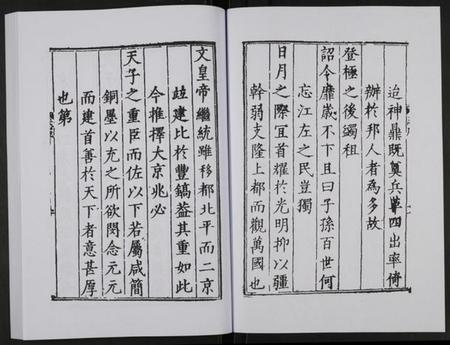 迨神鼎既奠兵革四出率倚
辦於邦人者為多故
登極之後蠲租
詔令靡歲不下且曰子孫百世何
忘江左之民豈獨
日月之際宜首耀於光明抑以疆
幹弱支隆上都而觀萬國也
文皇帝繼統雖移都北平而二京
並建比於豐鎬葢其重如此
今推擇大京兆必
天子之重臣而佐以下若屬咸簡
銅墨以充之所欲閔念元元
而建首善於天下者意甚厚
也第